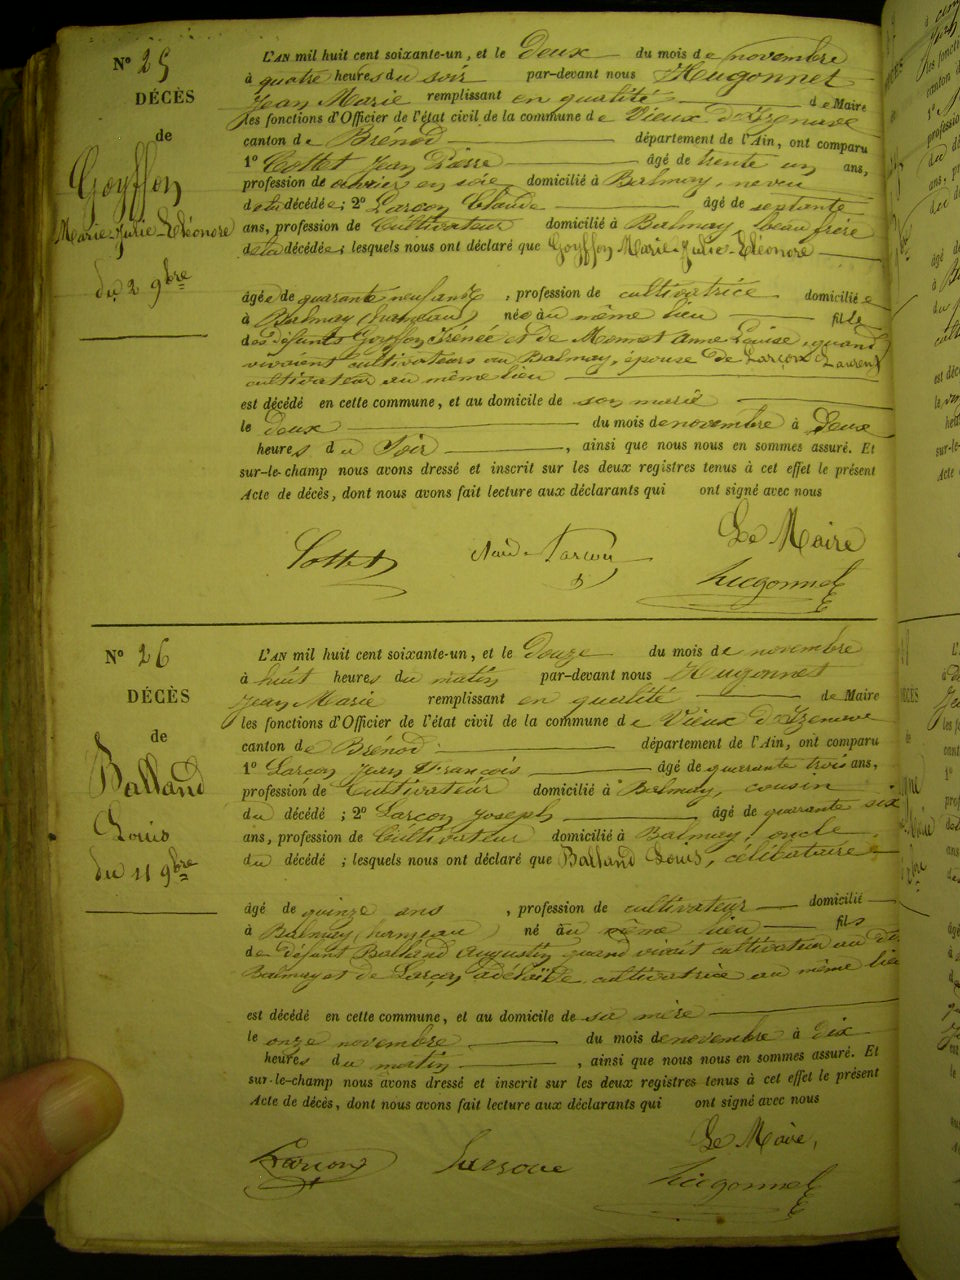 N° 25
DÉCÈS
de
Goyffon
Marie-Julie-Eléonore
du 2 9bre
L'AN mil huit cent soixante-un, et le Deux du mois de novembre
à quatre heures du soir par-devant nous Hugonnet
Jean Marie remplissant en qualité de Maire
les fonctions d'Officier de l'état civil de la commune de Vieux d'Izenave
canton de Brénod département de l'Ain, ont comparu
1° Cottet Jean Pierre âgé de trente un ans,
profession de ouvrier en soie domicilié à Balmay, neveu
de la décédée; 2° Larçon Claude âgé de septante
ans, profession de Cultivateur domicilié à Balmay, beau frère
de la décédée; lesquels nous ont déclaré que Goyffon Marie-Julie-Eléonore
âgée de quarante neuf ans , profession de cultivatrice domiciliée
à Balmay (hameau) née au même lieu fille
des défunts Goyffon Irénée et de Momet Anne Louise, quand
vivaient cultivateurs au Balmay, épouse de Larçon Laurent
cultivateur au même lieu
est décédé en cette commune, et au domicile de son marie
le deux du mois de novembre à Deux
heures du Soir , ainsi que nous nous en sommes assuré. Et
sur-le-champ nous avons dressé et inscrit sur les deux registres tenus à cet effet le présent
Acte de décès, dont nous avons fait lecture aux déclarants qui ont signé avec nous
Le Maire
Cottet Larçon Hugonnet
N° 26
DÉCÈS
de
Balland
Louis
du 11 9bre
L'AN mil huit cent soixante-un, et le Douze du mois de novembre
à huit heures du matin par-devant nous Hugonnet
Jean Marie remplissant en qualité de Maire
les fonctions d'Officier de l'état civil de la commune de Vieux d'Izenave
canton de Brénod département de l'Ain, ont comparu
1° Larçon Jean François âgé de quarante trois ans,
profession de Cultivateur domicilié à Balmay, cousin
du décédé ; 2° Larçon Joseph âgé de quarante six
ans, profession de Cultivateur domicilié à Balmay, oncle
du décédé ; lesquels nous ont déclaré que Balland Louis, célibataire
âgé de quinze ans , profession de cultivateur domicilié
à Balmay (hameau) né au même lieu fils
de défunt Balland Augustin quand vivait cultivateur au dit
Balmay et de Larçon adélaïde, cultivatrice au même lieu
est décédé en cette commune, et au domicile de sa mère
le onze novembre du mois de novembre à dix
heures du matin , ainsi que nous nous en sommes assuré. Et
sur-le-champ nous avons dressé et inscrit sur les deux registres tenus à cet effet le présent
Acte de décès, dont nous avons fait lecture aux déclarants qui ont signé avec nous
Le Maire,
Larçon Hugonnet